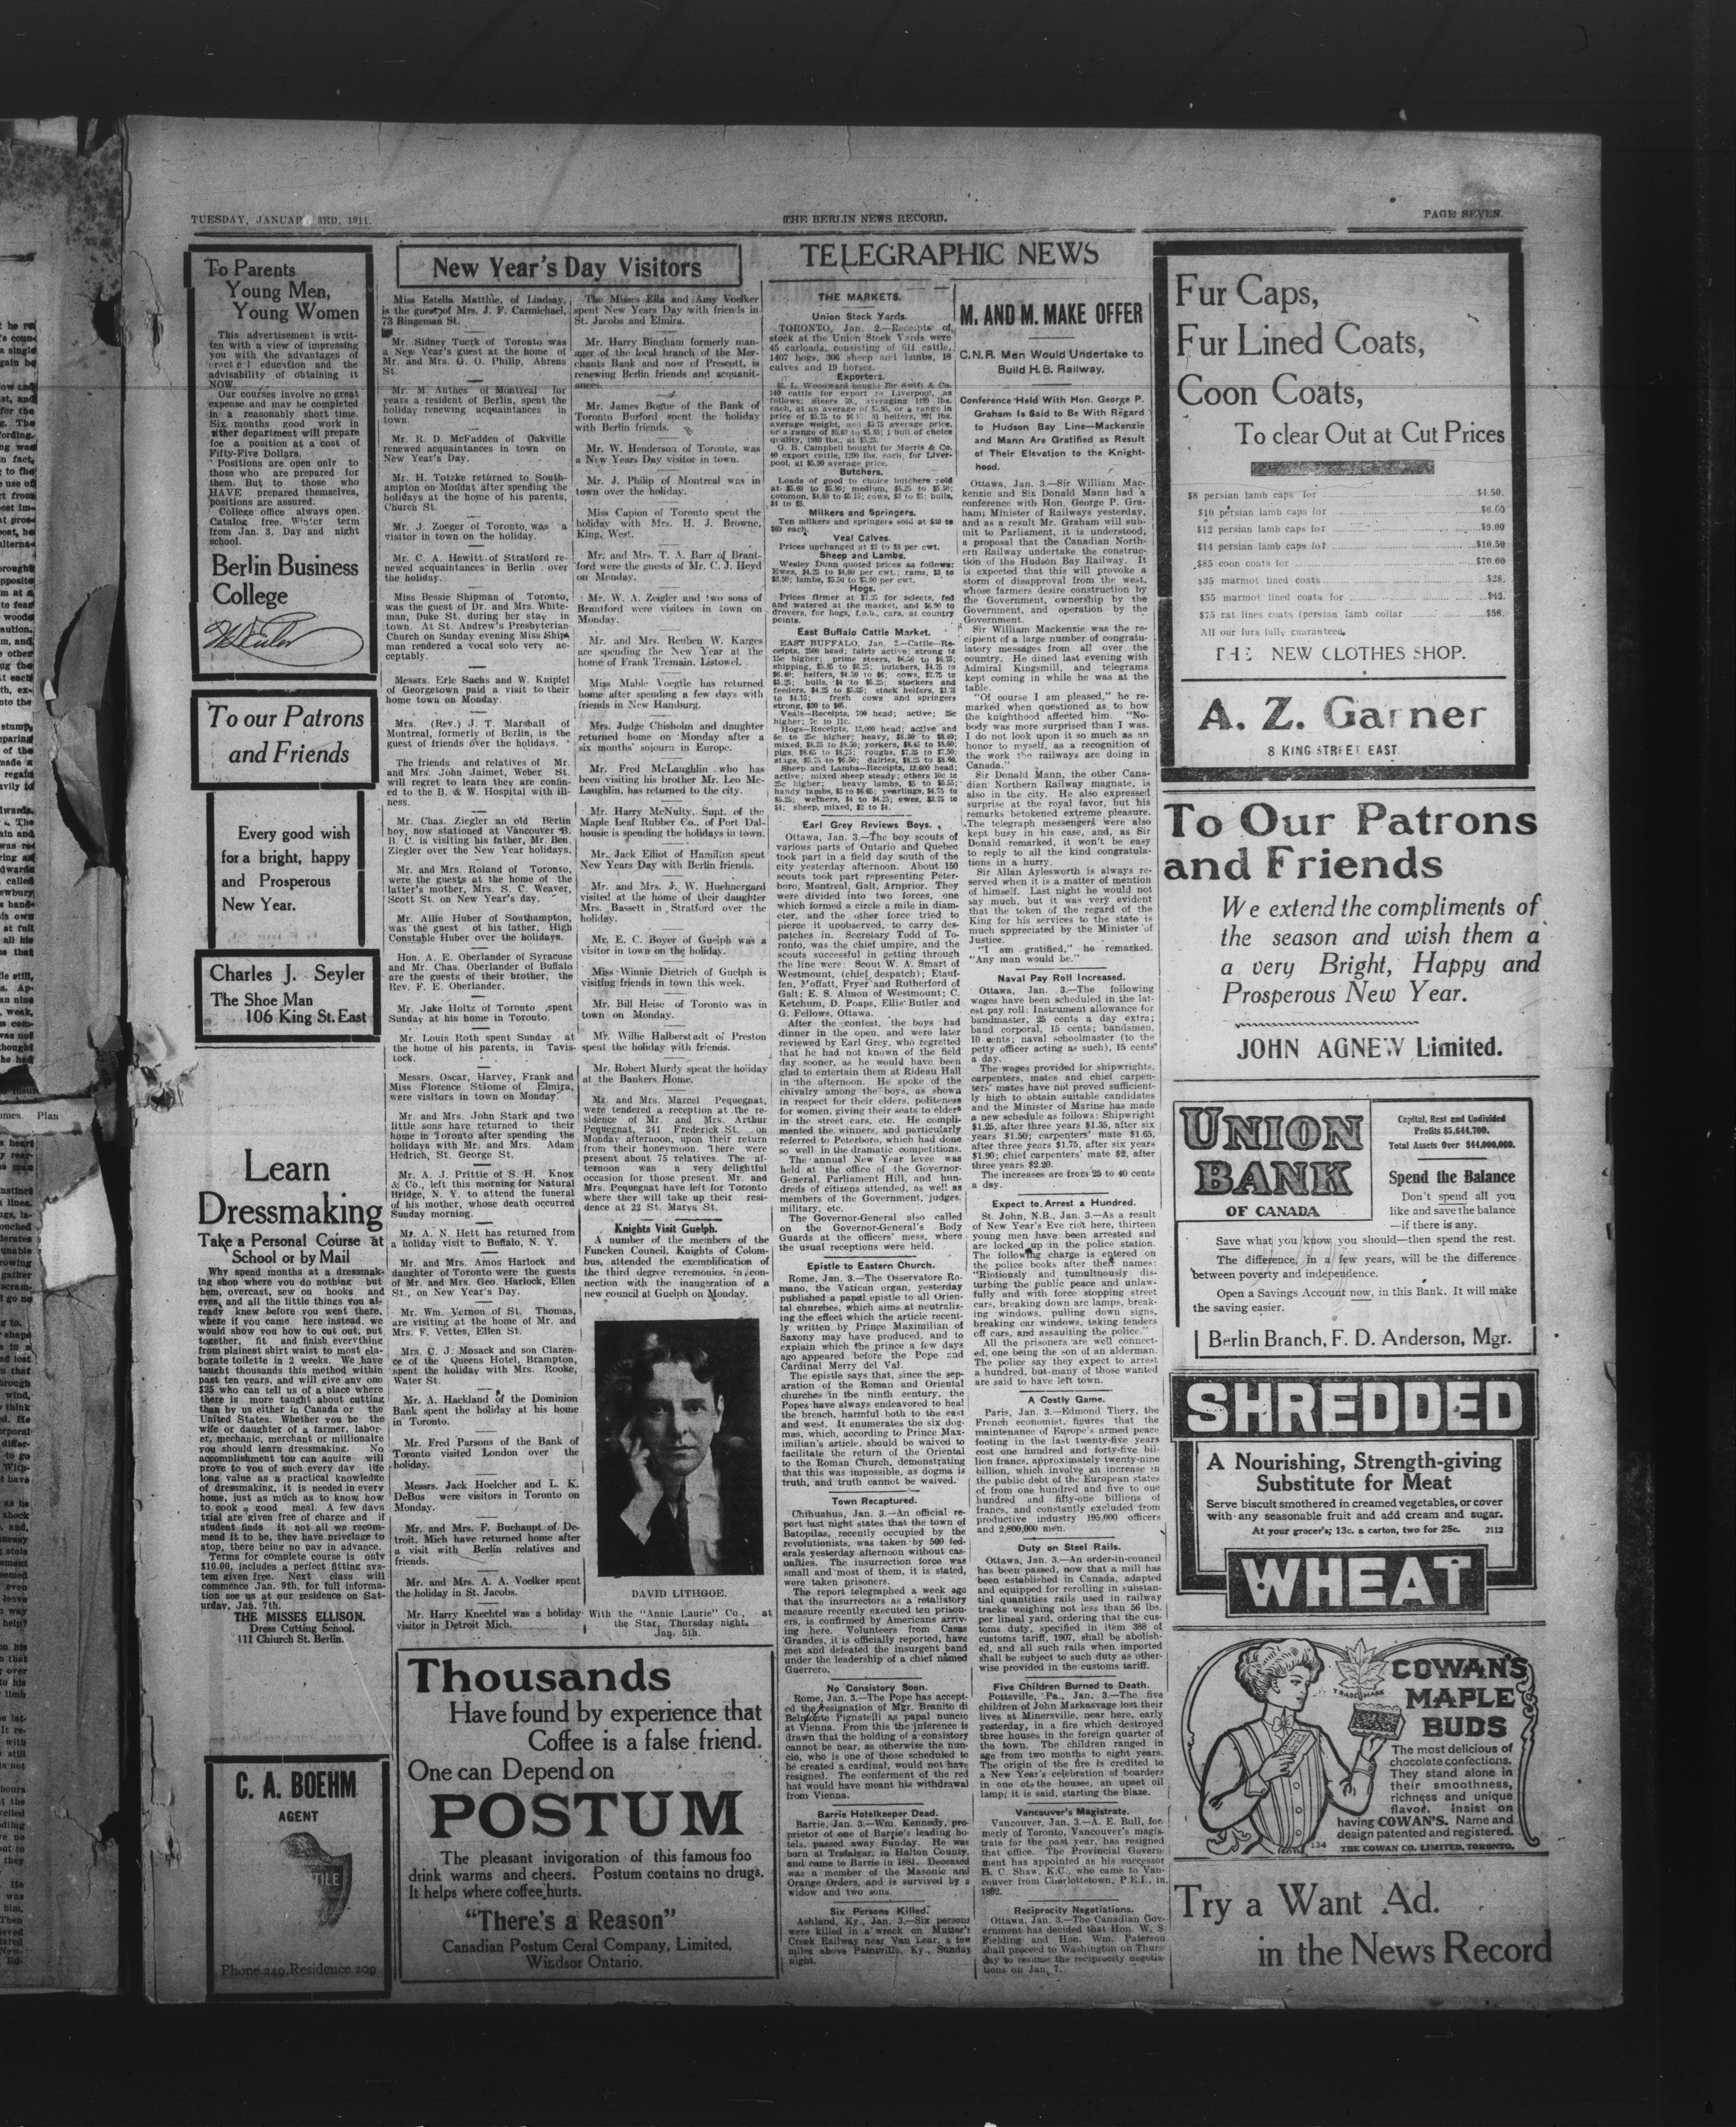 TUESDAY, JANUAR 3RD, 1911.
THE BERLIN NEWS RECORD.
PAGE SEVEN.
To Parents
Young Men,
Young Women
This advertisement is writ-
ten with a view of impressing
you with the advantages of
education and the
advisability of obtaining it
NOW.
Our courses involve no great
expense and may be completed
in a reasonably short time.
Six months good work in
either department will prepare
foe a position at a cost of
Fifty-Five Dollars.
Positions are open only to
those who are prepared for
them. But to those who
HAVE prepared themselves,
positions are assured.
College office always open.
Catalog free. Winter term
from Jan. 3. Day and night
school.
Berlin Business
College
To our Patrons
and Friends
Every good wish
for a bright, happy
and Prosperous
New Year.
Charles J. Seyler
The Shoe Man
106 King St. East
Learn
Dressmaking
Take a Personal Course at
School or by Mail
Why spend months at a dressmak-
ing shop where you do nothing but
hem, overcast, sew on hooks and
eyes, and all the little things you al-
ready knew before you went there,
where if you came here instead, we
would show you how to cut out, put
together, fit and finish everything
from plainest shirt waist to most ela-
borate toilette in 2 weeks. We have
taught thousands this method within
past ten years, and will give any one
$25 who can tell us of a place where
there is more taught about cutting
than by us either in Canada or the
United States. Whether you be the
wife or daughter of a farmer, labor-
er, mechanic, merchant or millionaire
you should learn dressmaking. No
accomplishment tou can aquire will
prove to you of such every day life
long value as a practical knowledge
of dressmaking, it is needed in every
home, just as much as to know how
to cook a good meal. A few days
trial are given free of charge and if
student finds it not all we recom-
mend it to be, they have privelage to
stop, there being no pay in advance.
Terms for complete course is only
$10.00, includes a perfect fitting sys-
tem given free. Next class will
commence Jan. 9th, for full informa-
tion see us at our residence on Sat-
urday, Jan. 7th.
THE MISSES ELLISON.
Dress Cutting School.
111 Chiurch St. Berlin.
C. A. BOEHM
AGENT
TILE
Phone 249, Residence 209
New Year's Day Visitors
Miss Estella Matthie, of Lindsay,
is the guest of Mrs. J. F. Carmichael,
73 Bingeman St.
Mr. Sidney Tuerk of Toronto was
a New Year's guest at the home of
Mr. and Mrs. G. O. Philip, Ahrens
St.
Mr. M. Anthes of Montreal for
years a resident of Berlin, spent the
holiday renewing acquaintances in
town.
Mr. R. D. McFadden of Oakville
renewed acquaintances in town on
New Year's Day.
Mr. H. Totzke returned to South-
ampton on Mondat after spending the
holidays at the home of his parents,
Church St.
Mr. J. Zoeger of Toronto, was a
visitor in town on the holiday.
Mr. C. A. Hewitt of Stratford re-
newed acquaintances in Berlin over
the holiday.
Miss Bessie Shipman of Toronto,
was the guest of Dr. and Mrs. White-
man, Duke St. during her stay in
town. At St. Andrew's Presbyterian
Church on Sunday evening Miss Ship-
man rendered a vocal solo very ac-
ceptably.
Messrs. Erle Sachs and W. Knipfel
of Georgetown paid a visit to their
home town on Monday.
Mrs. (Rev.) J. T. Marshall of
Montreal, formerly of Berlin, is the
guest of friends over the holidays.
The friends and relatives of Mr.
and Mrs. John Jaimet, Weber St.
will regret to learn they are confin-
ed to the B. & W. Hospital with ill-
ness.
Mr. Chas. Ziegler an old Berlin
boy, now stationed at Vancouver B.
B. C. is visiting his father, Mr. Ben.
Ziegler over the New Year holidays.
Mr. and Mrs. Roland of Toronto,
were the guests at the home of the
latter's mother, Mrs. S. C. Weaver,
Scott St. on New Year's day.
Mr. Allie Huber of Southampton,
was the guest of his father, High
Constable Huber over the holidays.
Hon. A. E. Oberlander of Syracuse
and Mr. Chas. Oberlander of Buffalo
are the guests of their brother, the
Rev. F. E. Oberlander.
Mr. Jake Holtz of Toronto spent
Sunday at his home in Toronto.
Mr. Louis Roth spent Sunday at
the home of his parents, in Tavis-
tock.
Messrs. Oscar, Harvey, Frank and
Miss Florence Stiome of Elmira,
were visitors in town on Monday.
Mr. and Mrs. John Stark and two
little sons have returned to their
home in Toronto after spending the
holidays with Mr. and Mrs. Adam
Hedrich, St. George St.
Mr. A. J. Prittie of S. H. Knox
& Co., left this morning for Natural
Bridge, N. Y. to attend the funeral
of his mother, whose death occurred
Sunday morning.
Mr. A. N. Hett has returned from
a holiday visit to Buffalo, N. Y.
Mr. and Mrs. Amos Harlock and
daughter of Toronto were the guests
of Mr. and Mrs. Geo. Harlock, Ellen
St., on New Year's Day.
Mr. Wm. Vernon of St. Thomas,
are visiting at the home of Mr. and
Mrs. F. Vettes, Ellen St.
Mrs. C. J. Mosack and son Claren-
ce of the Queens Hotel, Brampton,
spent the holiday with Mrs. Rooke,
Water St.
Mr. A. Hackland of the Dominion
Bank spent the holiday at his home
in Toronto.
Mr. Fred Parsons of the Bank of
Toronto visited London over the
holiday.
Messrs. Jack Hoelcher and L. K.
DeBus were visitors in Toronto on
Monday.
Mr. and Mrs. F. Buchaupt of De-
troit, Mich have returned home after
a visit with Berlin relatives and
friends.
Mr. and Mrs. A. A. Voelker spent
the holiday in St. Jacobs.
Mr. Harry Knechtel was a holiday
visitor in Detroit Mich.
The Misses Ella and Amy Voelker
spent New Years Day with friends in
St. Jacobs and Elmira.
Mr. Harry Bingham formerly man-
ager of the local branch of the Mer-
chants Bank and now of Prescott, is
renewing Berlin friends and acquanit-
ances.
Mr. James Bogue of the Bank of
Toronto Burford spent the holiday
with Berlin friends.
Mr. W. Henderson of Toronto, was
a New Years Day visitor in town.
Mr. J. Philip of Montreal was in
town over the holiday.
Miss Capion of Toronto spent the
holiday with Mrs. H. J. Browne,
King, West.
Mr. and Mrs. T. A. Barr of Brant-
ford were the guests of Mr. C. J. Heyd
on Monday.
Mr. W. A. Zeigler and two sons of
Brantford were visitors in town on
Monday.
Mr. and Mrs. Reuben W. Karges
are spending the New Year at the
home of Frank Tremain, Listowel.
Miss Mable Voegtle has returned
home after spending a few days with
friends in New Hamburg.
Mrs. Judge Chisholm and daughter
returned home on Monday after a
six months' sojourn in Europe.
Mr. Fred McLaughlin who has
been visiting his brother Mr. Leo Mc-
Laughlin, has returned to the city.
Mr. Harry McNulty, Supt. of the
Maple Leaf Rubber Co., of Port Dal-
housie is spending the holidays in town.
Mr. Jack Elliot of Hamilton spent
New Years Day with Berlin friends.
Mr. and Mrs. J. W. Huehnergard
visited at the home of their daughter
Mrs. Bassett in Stratford over the
holiday.
Mr. E. C. Boyer of Guelph was a
visitor in town on the holiday.
Miss Winnie Dietrich of Guelph is
visiting friends in town this week.
Mr. Bill Heise of Toronto was in
town on Monday.
Mr. Willie Halberstadt of Preston
spent the holiday with friends.
Mr. Robert Murdy spent the holiday
at the Bankers Home.
Mr. and Mrs. Marcel Pequegnat,
were tendered a reception at the re-
sidence of Mr. and Mrs. Arthur
Pequegnat, 241 Frederick St. on
Monday afternoon, upon their return
from their honeymoon. There were
present about 75 relatives. The af-
ternoon was a very delightful
occasion for those present. Mr. and
Mrs. Pequegnat have left for Toronto
where they will take up their resi-
dence at 23 St. Marys St.
Knights Visit Guelph.
A number of the members of the
Funcken Council, Knights of Colom-
bus, attended the exemplification of
the third degree ceremonies, in con-
nection with the inaugeration of a
new council at Guelph on Monday.
DAVID LITHGOE.
With the "Annie Laurie" Co., at
the Star, Thursday night.
Jan. 5th.
Thousands
Have found by experience that
Coffee is a false friend.
One can Depend on
POSTUM
The pleasant invigoration of this famous foo
drink warms and cheers. Postum contains no drugs.
It helps where coffee hurts.
"There's a Reason"
Canadian Postum Ceral Company, Limited,
Windsor Ontario.
TELEGRAPHIC NEWS
THE MARKETS.
Union Stock Yards.
TORONTO, Jan. 2.—Receipts of
stock at the Union Stock Yards were
45 carloads, consisting of 611 cattle,
1407 hogs, 306 sheep and lambs, 18
calves and 19 horses.
Exporters.
E. L. Woodward bought for Swift & Co.
140 cattle for export to Liverpool, as
G. B. Campbell bought for Morris & Co.
40 export cattle, 1200 lbs. each, for Liver-
pool, at $5.90 average price.
Butchers.
Loads of good to choice butchers sold
at $5.60 to $5.90; medium, $5.25 to $5.50;
common, $4.80 to $5.15; cows, $3 to $5; bulls,
$4 to $5.
Milkers and Springers.
Ten milkers and springers sold at $40 to
$69 each.
Veal Calves.
Prices unchanged at $3 to $8 per cwt.
Sheep and Lambs.
Wesley Dunn quoted prices as follows:
Ewes, $4.25 to $4.60 per cwt.; rams, $3 to
$3.50; lambs, $5.50 to $5.90 per cwt.
Hogs.
Prices firmer at $7.25 for selects, fed
and watered at the market, and $6.90 to
drovers, for hogs, f.o.b., cars, at country
points.
East Buffalo Cattle Market.
EAST BUFFALO, Jan. 2.—Cattle—Re-
ceipts, 2500 head; fairly active; strong to
15c higher; prime steers, $6.50 to $6.75;
shipping, $5.85 to $6.25; butchers, $4.75 to
$6.40; heifers, $4.50 to $6; cows, $2.75 to
$5.25; bulls, $4 to $5.25; stockers and
feeders, $4.25 to $5.25; stock heifers, $3.75
to $4.15; fresh cows and springers
strong, $30 to $65.
Veals—Receipts, 700 head; active; 25c
higher; 7c to 11c.
Hogs—Receipts, 12,000 head; active and
5c to 25c higher; heavy, $8.30 to $8.40;
mixed, $8.25 to $8.50; yorkers, $8.45 to $8.60;
pigs, $8.65 to $8.75; roughs, $7.25 to $7.50;
stags, $5.75 to $6.50; dairies, $8.25 to $8.60.
Sheep and Lambs—Receipts, 12,600 head;
active; mixed sheep steady; others 10c to
25c higher; heavy lambs, $5 to $5.55;
handy lambs, $5 to $6.65; yearlings, $4.75 to
$5.25; wethers, $4 to $4.25; ewes, $3.75 to
$4; sheep, mixed, $2 to $4.
Earl Grey Reviews Boys.
Ottawa, Jan. 3.—The boy scouts of
various parts of Ontario and Quebec
took part in a field day south of the
city yesterday afternoon. About 150
scouts took part representing Peter-
boro, Montreal, Galt, Arnprior. They
were divided into two forces, one
which formed a circle a mile in diam-
eter, and the other force tried to
pierce it unobserved, to carry des-
patches in. Secretary Todd of To-
ronto, was the chief umpire, and the
scouts successful in getting through
the line were: Scout W. A. Smart of
Westmount, (chief despatch); Etauf-
fen, Moffatt, Fryer and Rutherford of
Galt; E. S. Almon of Westmount; C.
Ketchum, D. Poaps, Ellis Butler and
G. Fellows, Ottawa.
After the contest, the boys had
dinner in the open, and were later
reviewed by Earl Grey, who regretted
that he had not known of the field
day sooner, as he would have been
glad to entertain them at Rideau Hall
in the afternoon. He spoke of the
chivalry among the boys, as shown
in respect for their elders, politeness
for women, giving their seats to elders
in the street cars, etc. He compli-
mented the winners, and particularly
referred to Peterboro, which had done
so well in the dramatic competitions.
The annual New Year levee was
held at the office of the Governor-
General, Parliament Hill, and hun-
dreds of citizens attended, as well as
members of the Government, judges,
military, etc.
The Governor-General also called
on the Governor-General's Body
Guards at the officers' mess, where
the usual receptions were held.
Epistle to Eastern Church.
Rome, Jan. 3.—The Osservatore Ro-
mano, the Vatican organ, yesterday
published a papal epistle to all Orien-
tal churches, which aims at neutraliz-
ing the effect which the article recent-
ly written by Prince Maximilian of
Saxony may have produced, and to
explain which the prince a few days
ago appeared before the Pope and
Cardinal Merry del Val.
The epistle says that, since the sep-
aration of the Roman and Oriental
churches in the ninth century, the
Popes have always endeavored to heal
the breach, harmful both to the east
and west. It enumerates the six dog-
mas, which, according to Prince Max-
imilian's article, should be waived to
facilitate the return of the Oriental
to the Roman Church, demonstrating
that this was impossible, as dogma is
truth, and truth cannot be waived.
Town Recaptured.
Chihuahua, Jan. 3.—An official re-
port last night states that the town of
Batopilas, recently occupied by the
revolutionists, was taken by 500 fed-
erals yesterday afternoon without cas-
ualties. The insurrection force was
small and most of them, it is stated,
were taken prisoners.
The report telegraphed a week ago
that the insurrectors as a retaliatory
measure recently executed ten prison-
ers, is confirmed by Americans arriv-
ing here. Volunteers from Casas
Grandes, it is officially reported, have
met and defeated the insurgent band
under the leadership of a chief named
Guerrero.
No Consistory Soon.
Rome, Jan. 3.—The Pope has accept-
ed the resignation of Mgr. Branito di
Belmonte Pignatelli as papal nuncio
at Vienna. From this the inference is
drawn that the holding of a consistory
cannot be near, as otherwise the nun-
cio, who is one of those scheduled to
be created a cardinal, would not have
resigned. The conferment of the red
hat would have meant his withdrawal
from Vienna.
Barrie Hotelkeeper Dead.
Barrie, Jan. 3.—Wm. Kennedy, pro-
prietor of one of Barrie's leading ho-
tels, passed away Sunday. He was
born at Trafalgar, in Halton County,
and came to Barrie in 1881. Deceased
was a member of the Masonic and
Orange Orders, and is survived by a
widow and two sons.
Six Persons Killed.
Ashland, Ky., Jan. 3.—Six persons
were killed in a wreck on Mutter's
Creek Railway near Van Lear, a few
miles above Painsville, Ky., Sunday
night.
M. AND M. MAKE OFFER
C.N.R. Men Would Undertake to
Build H.B. Railway.
Conference Held With Hon. George P.
Graham Is Said to Be With Regard
to Hudson Bay Line—Mackenzie
and Mann Are Gratified as Result
of Their Elevation to the Knight-
hood.
Ottawa, Jan. 3.—Sir William Mac-
kenzie and Sis Donald Mann had a
conference with Hon. George P. Gra-
ham, Minister of Railways yesterday,
and as a result Mr. Graham will sub-
mit to Parliament, it is understood,
a proposal that the Canadian North-
ern Railway undertake the construc-
tion of the Hudson Bay Railway. It
is expected that this will provoke a
storm of disapproval from the west,
whose farmers desire construction by
the Government, ownership by the
Government, and operation by the
Government.
Sir William Mackenzie was the re-
cipient of a large number of congratu-
latory messages from all over the
country. He dined last evening with
Admiral Kingsmill, and telegrams
kept coming in while he was at the
table.
"Of course I am pleased," he re-
marked when questioned as to how
the knighthood affected him. "No-
body was more surprised than I was.
I do not look upon it so much as an
honor to myself, as a recognition of
the work the railways are doing in
Canada."
Sir Donald Mann, the other Cana-
dian Northern Railway magnate, is
also in the city. He also expressed
surprise at the royal favor, but his
remarks betokened extreme pleasure.
The telegraph messengers were also
kept busy in his case, and, as Sir
Donald remarked, it won't be easy
to reply to all the kind congratula-
tions in a hurry.
Sir Allan Aylesworth is always re-
served when it is a matter of mention
of himself. Last night he would not
say much, but it was very evident
that the token of the regard of the
King for his services to the state is
much appreciated by the Minister of
Justice.
"I am gratified," he remarked.
"Any man would be."
Naval Pay Roll Increased.
Ottawa, Jan. 3.—The following
wages have been scheduled in the lat-
est pay roll: Instrument allowance for
bandmaster, 25 cents a day extra;
band corporal, 15 cents; bandsmen,
10 cents; naval schoolmaster (to the
petty officer acting as such), 15 cents
a day.
The wages provided for shipwrights,
carpenters, mates and chief carpen-
ters' mates have not proved sufficient-
ly high to obtain suitable candidates
and the Minister of Marine has made
a new schedule as follows: Shipwright
$1.25, after three years $1.35, after six
years $1.50; carpenters' mate $1.65,
after three years $1.75, after six years
$1.90; chief carpenters' mate $2, after
three years $2.20.
The increases are from 25 to 40 cents
a day.
Expect to Arrest a Hundred.
St. John, N.B., Jan. 3.—As a result
of New Year's Eve riot here, thirteen
young men have been arrested and
are locked up in the police station.
The following charge is entered on
the police books after their names:
"Riotiously and tumultuously dis-
turbing the public peace and unlaw-
fully and with force stopping street
cars, breaking down arc lamps, break-
ing windows, pulling down signs,
breaking car windows, taking fenders
off cars, and assaulting the police."
All the prisoners are well connect-
ed, one being the son of an alderman.
The police say they expect to arrest
a hundred, but many of those wanted
are said to have left town.
A Costly Game.
Paris, Jan. 3.—Edmond Thery, the
French economist, figures that the
maintenance of Europe's armed peace
footing in the last twenty-five years
cost one hundred and forty-five bil-
lion francs, approximately twenty-nine
billion, which involve an increase in
the public debt of the European states
of from one hundred and five to one
hundred and fifty-one billions of
francs, and constantly excluded from
productive industry 195,000 officers
and 2,800,000 men.
Duty on Steel Rails.
Ottawa, Jan. 3.—An order-in-council
has been passed, now that a mill has
been established in Canada, adapted
and equipped for rerolling in substan-
tial quantities rails used in railway
tracks weighing not less than 56 lbs.
per lineal yard, ordering that the cus-
toms duty, specified in item 388 of
customs tariff, 1907, shall be abolish-
ed, and all such rails when imported
shall be subject to such duty as other-
wise provided in the customs tariff.
Five Children Burned to Death.
Pottsville, Pa., Jan. 3.—The five
children of John Markasvage lost their
lives at Minersville, near here, early
yesterday, in a fire which destroyed
three houses in the foreign quarter of
the town. The children ranged in
age from two months to eight years.
The origin of the fire is credited to
a New Year's celebration of boarders
in one of the houses, an upset oil
lamp, it is said, starting the blaze.
Vancouver's Magistrate.
Vancouver, Jan. 3.—A. E. Bull, for-
merly of Toronto, Vancouver's magis-
trate for the past year, has resigned
that office. The Provincial Govern-
ment has appointed as his successor
H. C. Shaw, K.C., who came to Van-
couver from Charlottetown, P.E.I., in
1892.
Reciprocity Negotiations.
Ottawa, Jan. 3.—The Canadian Gov-
ernment has decided that Hon. W. S.
Fielding and Hon. Wm. Paterson
shall proceed to Washington on Thurs-
day to resume the reciprocity negotia-
tions on Jan. 7.
Fur Caps,
Fur Lined Coats,
Coon Coats,
To clear Out at Cut Prices
$8 persian lamb caps for $4.50.
$10 persian lamb caps for $6.60
$12 persian lamb caps for $9.00
$14 persian lamb caps for $10.50
$85 coon coats for $70.00
$35 marmot lined coats $28.
$55 marmot lined coats for $42.
$75 rat lines coats (persian lamb collar $58.
All our furs fully guaranteed.
THE NEW CLOTHES SHOP.
A. Z. Garner
8 KING STREET EAST
To Our Patrons
and Friends
We extend the compliments of
the season and wish them a
a very Bright, Happy and
Prosperous New Year.
JOHN AGNEW Limited.
UNION
BANK
OF CANADA
Capital, Rest and Undivided
Profits $5,644,700.
Total Assets Over $44,000,000.
Spend the Balance
Don't spend all you
like and save the balance
—if there is any.
Save what you know you should—then spend the rest.
The difference, in a few years, will be the difference
between poverty and independence.
Open a Savings Account now, in this Bank. It will make
the saving easier.
Berlin Branch, F. D. Anderson, Mgr.
SHREDDED
A Nourishing, Strength-giving
Substitute for Meat
Serve biscuit smothered in creamed vegetables, or cover
with any seasonable fruit and add cream and sugar.
At your grocer's; 13c. a carton, two for 25c. 2112
WHEAT
COWAN'S
TRADE MARK
MAPLE
BUDS
The most delicious of
chocolate confections.
They stand alone in
their smoothness,
richness and unique
flavor. Insist on
having COWAN'S. Name and
design patented and registered.
134
THE COWAN CO. LIMITED, TORONTO.
Try a Want Ad.
in the News Record